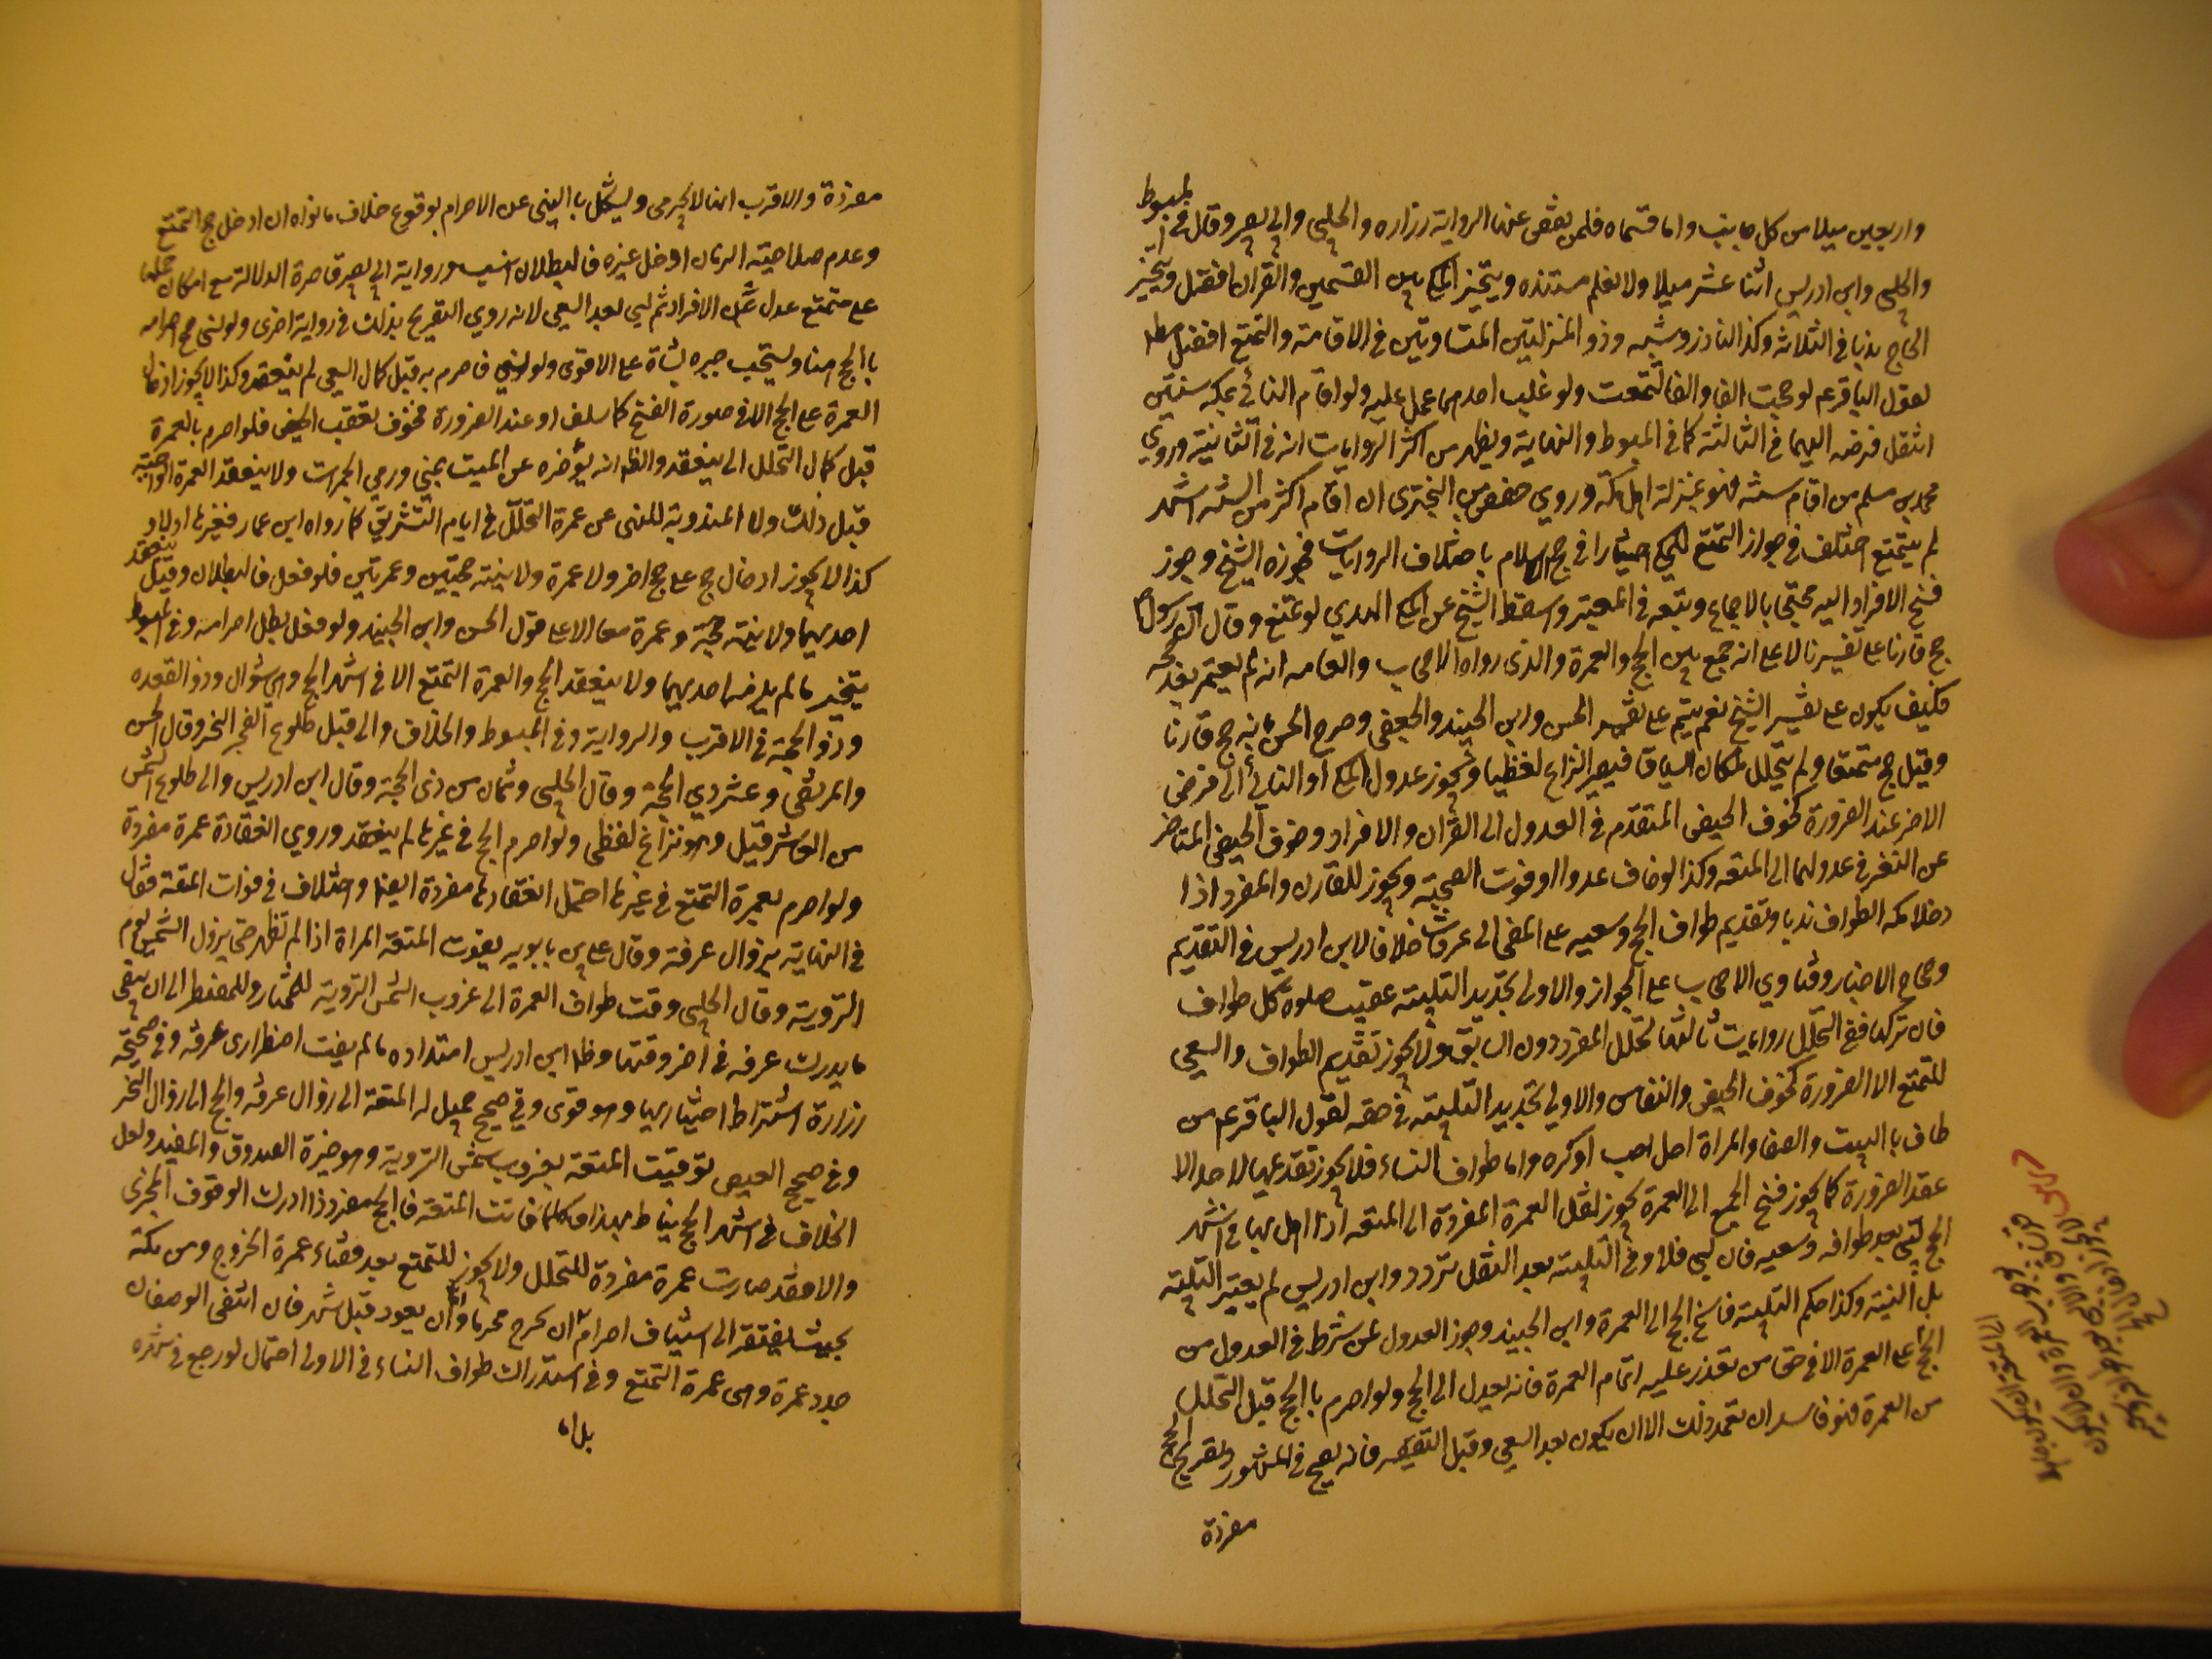 واربعين ميلا من كل جانب واما قسماه فلمن نقص عنها لرواية زراره والحلبي وابي بصير وقال في المبسوط
والحلبي وابن ادريس اثنا عشر ميلا ولا نعلم مستنده ويتخير المكي بين القسمين والقران افضل ويتخير
الحاج ندبا في الثلاثة وكذا الناذر وشبهه وذو المنزلتين المتساويتين في الاقامة والتمتع افضل مطلقا
لقول الباقر عم لو حججت الفا والفا لتمتعت ولو غلب احدهما عمل عليه ولو اقام النائي بمكه سنتين
انتقل فرضه اليهما في الثالثة كما في المبسوط والنهاية ويظهر من اكثر الروايات انه في الثانية وروي
محمد بن مسلم من اقام سنة فهو بمنزلة اهل مكة وروي حفص بن البختري ان اقام اكثر من الستة اشهر
لم يتمتع اختلف في جواز التمتع للمكي اختيارا في حج الاسلام باختلاف الروايات فجوزه الشيخ وجوز
فسخ الافراد اليه محتجا بالاجماع وتبعه في المعتبر واسقط الشيخ عن المكي الهدي لو تمتع وقال ان رسول الله
حج قارنا على تفسيرنا لا على انه جمع بين الحج والعمرة والذي رواه الاصحاب والعامه انه لم يعتمر بعد حجه
فكيف يكون على تفسير الشيخ نعم يتم على تفسير الحسن وابن الجنيد والجعفي وصرح الحسن بانه حج قارنا
وقيل حج متمتعا ولم يتحلل لمكان السياق فيصير النزاع لفظيا ويجوز عدول المكي او النائي الى فرض
الاخر عند الضرورة كخوف الحيض المتقدم في العدول الى القران والافراد وخوف الحيض المتاخر
عن النفر في عدولهما الى المتعه وكذا لو خاف عدوا او فوت الصحبة ويجوز للقارن والمفرد اذا
دخلا مكه الطواف ندبا وتقديم طواف الحج وسعيه على المضي الى عرفات خلافا لابن ادريس في التقديم
وصحاح الاخبار وفتاوي الاصحاب على الجواز والاولى تجديد التلبيه عقيب صلوة كل طواف
فان تركها ففي التحلل روايات ثالثها تحلل المفرد دون السابق ولا يجوز تقديم الطواف والسعي
للمتمتع الا الضرورة كخوف الحيض والنفاس والاولى تجديد التلبيه في حقه لقول الباقر عم من
طاف بالبيت والصفا والمراة احل احب او كره واما طواف النساء فلا يجوز تقديمها لاحد الا
عقد الضرورة كما يجوز فسخ الحج الى العمرة يجوز نقل العمرة المفردة الى المتعه اذا اهل بها في اشهر
الحج لبى بعد طوافه وسعيه فان لبى فلا وفي التلبيه بعد النقل تردد وابن ادريس لم يعتبر التلبية
بل النية وكذا حكم التلبيه فاسخ الحج الى العمرة وابن الجنيد وجوز العدول لمن شرط في العدول من
الحج على العمرة الا في حق من تعذر عليه اتمام العمرة فانه يعدل الى الحج ولو احرم باالحج قبل التحلل
من العمرة فهو فاسد ان تعمد ذلك الا ان يكون بعد السعي وقبل التقصير فانه يصح في المشهور وتصير الحجة
مفردة
مفردة والاقرب انها لا تجزي ويشكل باالنهي عن الاحرام بوقوع خلاف مانواه ان ادخل حج التمتع
وعدم صلاحية الزمان ان ادخل غيره فالبطلان انسب ورواية ابي بصير قاصرة الدلالة مع امكان حملها
على متمتع عدل عن الافراد ثم لبى بعد السعي لانه روي التصريح بذلك في رواية اخرى ولو نسي صح احرامه
باالحج هنا ويستحب جبره بشاة على الاقوى ولو نسي فاحرم به قبل كمال السعي لم ينعقد وكذا لا يجوز ادخال
العمرة على الحج الا في صورة الفسخ كما سلف او عند الضرورة مخوف تعقب الحيض فلو احرم بالعمرة
قبل كمال التحلل لم ينعقد والظ انه يؤخره عن المبيت بمنى ورمي الجمرات ولا ينعقد العمرة الواجبه
قبل ذلك ولا المندوبة للنهي عن عمرة التحلل في ايام التشريق كما رواه ابن عمار فغيرها اولى و
كذا لا يجوز ادخال حج على حج اخر ولا عمرة ولا بنية حجتين وعمرتين فلو فعل فالبطلان وقيل ينعقد
احديهما ولا بنية حجة وعمرة معا الا على قول الحسن وابن الجنيد ولو فعل بطل احرامه وفي المبسوط
يتخير مالم يلزمه احديهما ولا ينعقد الحج والعمرة التمتع الا في اشهر الحج وهي شوال وذو القعده
وذو الحجة في الاقرب والرواية وفي المبسوط والخلاف والى قبل طلوع الفجر النحر وقال الحسن
والمرتضى وعشر ذي الحجة وقال الحلبي وثمان من ذي الحجة وقال ابن ادريس والى طلوع الشمس
من العاشر قيل وهو نزاع لفظي ولو احرم الحج في غيرها لم ينعقد وروي انعقاده عمرة مفردة
ولو احرم بعمرة التمتع في غيرها احتمل انعقادها مفردة ايضا واختلاف في فوات المتعة فقال
في النهاية بزوال عرفة وقال علي بن بابويه يفوت المتعة المراة اذا لم تطهر حتى يزول الشمس يوم
التروية وقال الحلبي وقت طواف العمرة الى غروب الشمس التروية للمختار وللمضطر الى ان يبقى
ما يدرك عرفه في اخر وقتها وظ ابن ادريس امتداده مالم يفت اضطراري عرفه وفي صحيحة
زرارة اشتراط اختياريها وهو قوى وفي صحيح جميل له المتعة الى زوال عرفه والحج الى زوال النحر
وفي صحيح العيص توقيت المتعة بغروب شمس التروية وهو خيرة الصدوق والمفيد ولعل
الخلاف في اشهر الحج يناط بهذا فكلما فاتت المتعة فالحج مفرد اذا ادرك الوقوف المجزي
والا فقد صارت عمرة مفردة للتحلل ولا يجوز للتمتع بعد قضاء عمرة الخروج ومن مكة
بحيث يفتقر الى استيناف احرام ان يخرج محرما وان يعود قبل شهر فان انتفى الوصفان
جدد عمرة وهي عمرة التمتع وفي استدراك طواف النساء في الاولى احتمال لو رجع في شهره
بل اما